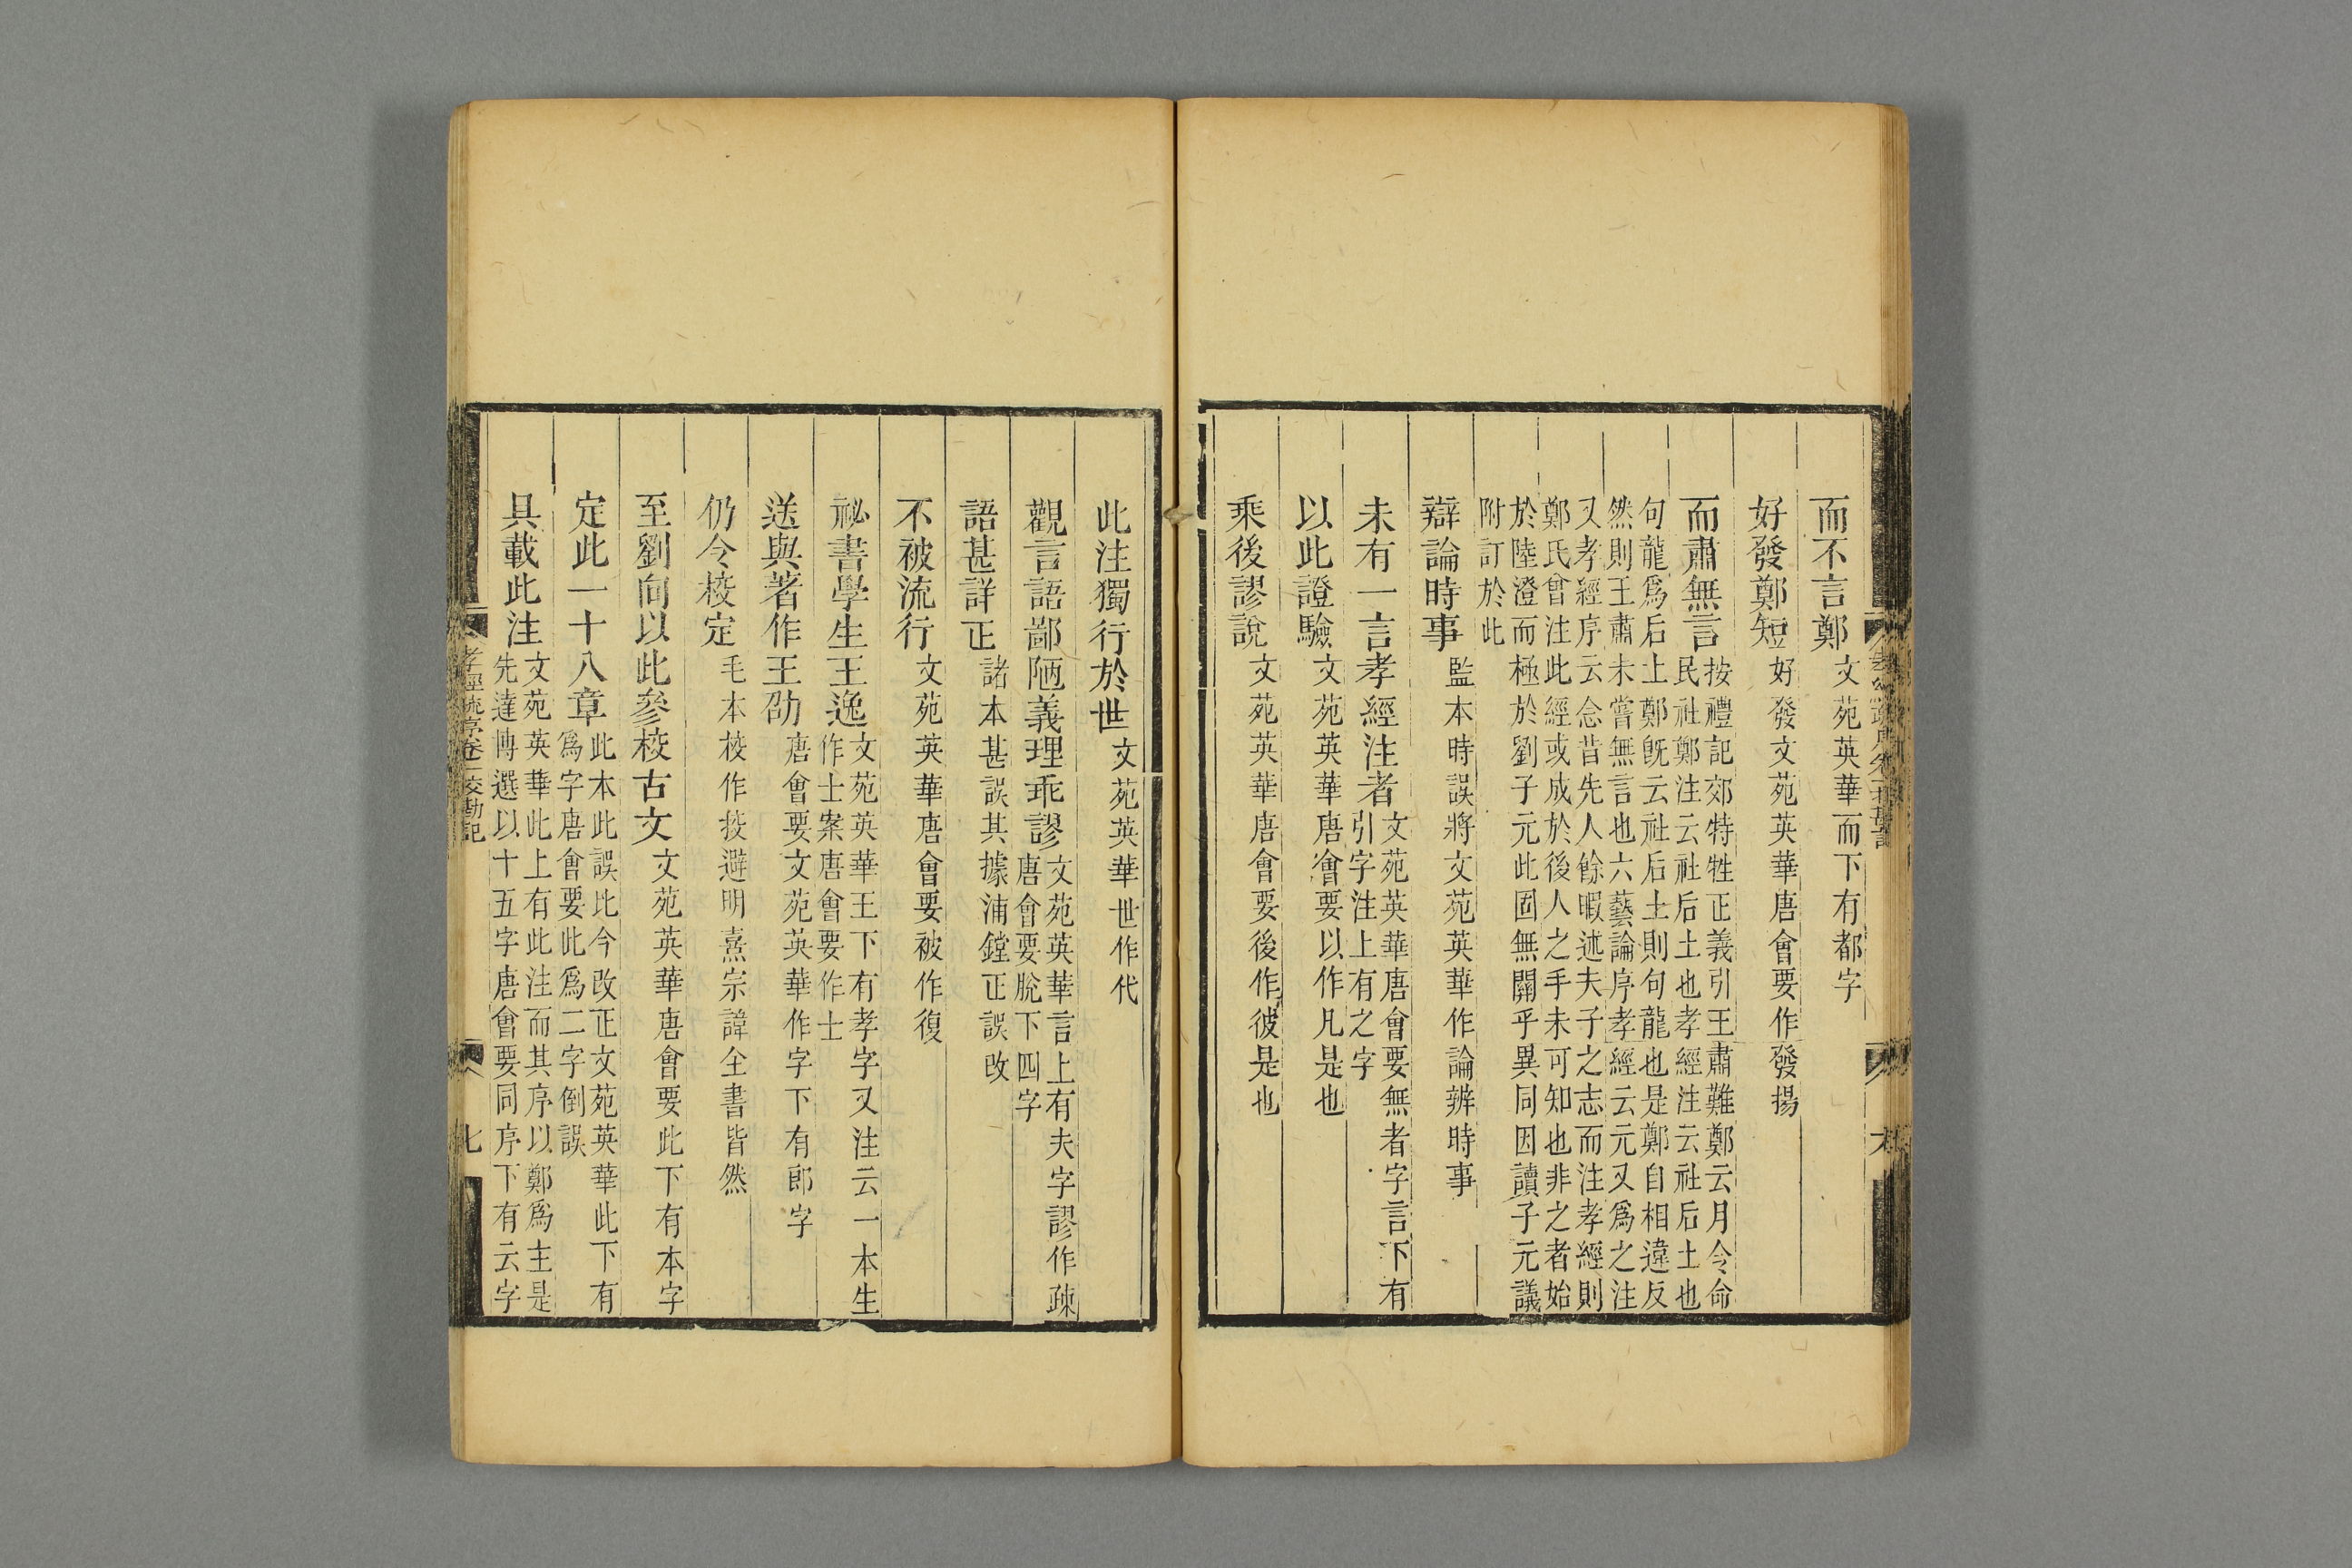 而不言鄭文苑英華而下有都字
好發鄭短好發文苑英華唐會要作發揚
而肅無言按禮記郊特牲正義引王肅難鄭云月令命
民社鄭注云社后土也孝經注云社后土也
句龍爲后土鄭旣云社后土則句龍也是鄭自相違反
然則王肅未嘗無言也六藝論序孝經云元又爲之注
又孝經序云念昔先人餘暇述夫子之志而注孝經則
鄭氏曾注此經或成於後人之手未可知也非之者始
於陸澄而極於劉子元此固無關乎異同因讀子元議
附訂於此
辯論時事監本時誤將文苑英華作論辨時事
未有一言孝經注者文苑英華唐會要無者字言下有
引字注上有之字
以此證驗文苑英華唐會要以作凡是也
乘後謬說文苑英華唐會要後作彼是也
此注獨行於世文苑英華世作代
觀言語鄙陋義理乖謬文苑英華言上有夫字謬作疎
唐會要脫下四字
語甚詳正諸本甚誤其據浦鏜正誤改
不被流行文苑英華唐會要被作復
祕書學生王逸文苑英華王下有孝字又注云一本生
作士案唐會要作士
送與著作王劭唐會要文苑英華作字下有郎字
仍令校定毛本校作挍避明熹宗諱全書皆然
至劉向以此參校古文文苑英華唐會要此下有本字
定此一十八章此本此誤比今改正文苑英華此下有
爲字唐會要此爲二字倒誤
具載此注文苑英華此上有此注而其序以鄭爲主是
先達博選以十五字唐會要同序下有云字
孝經疏序卷一校勘記
七